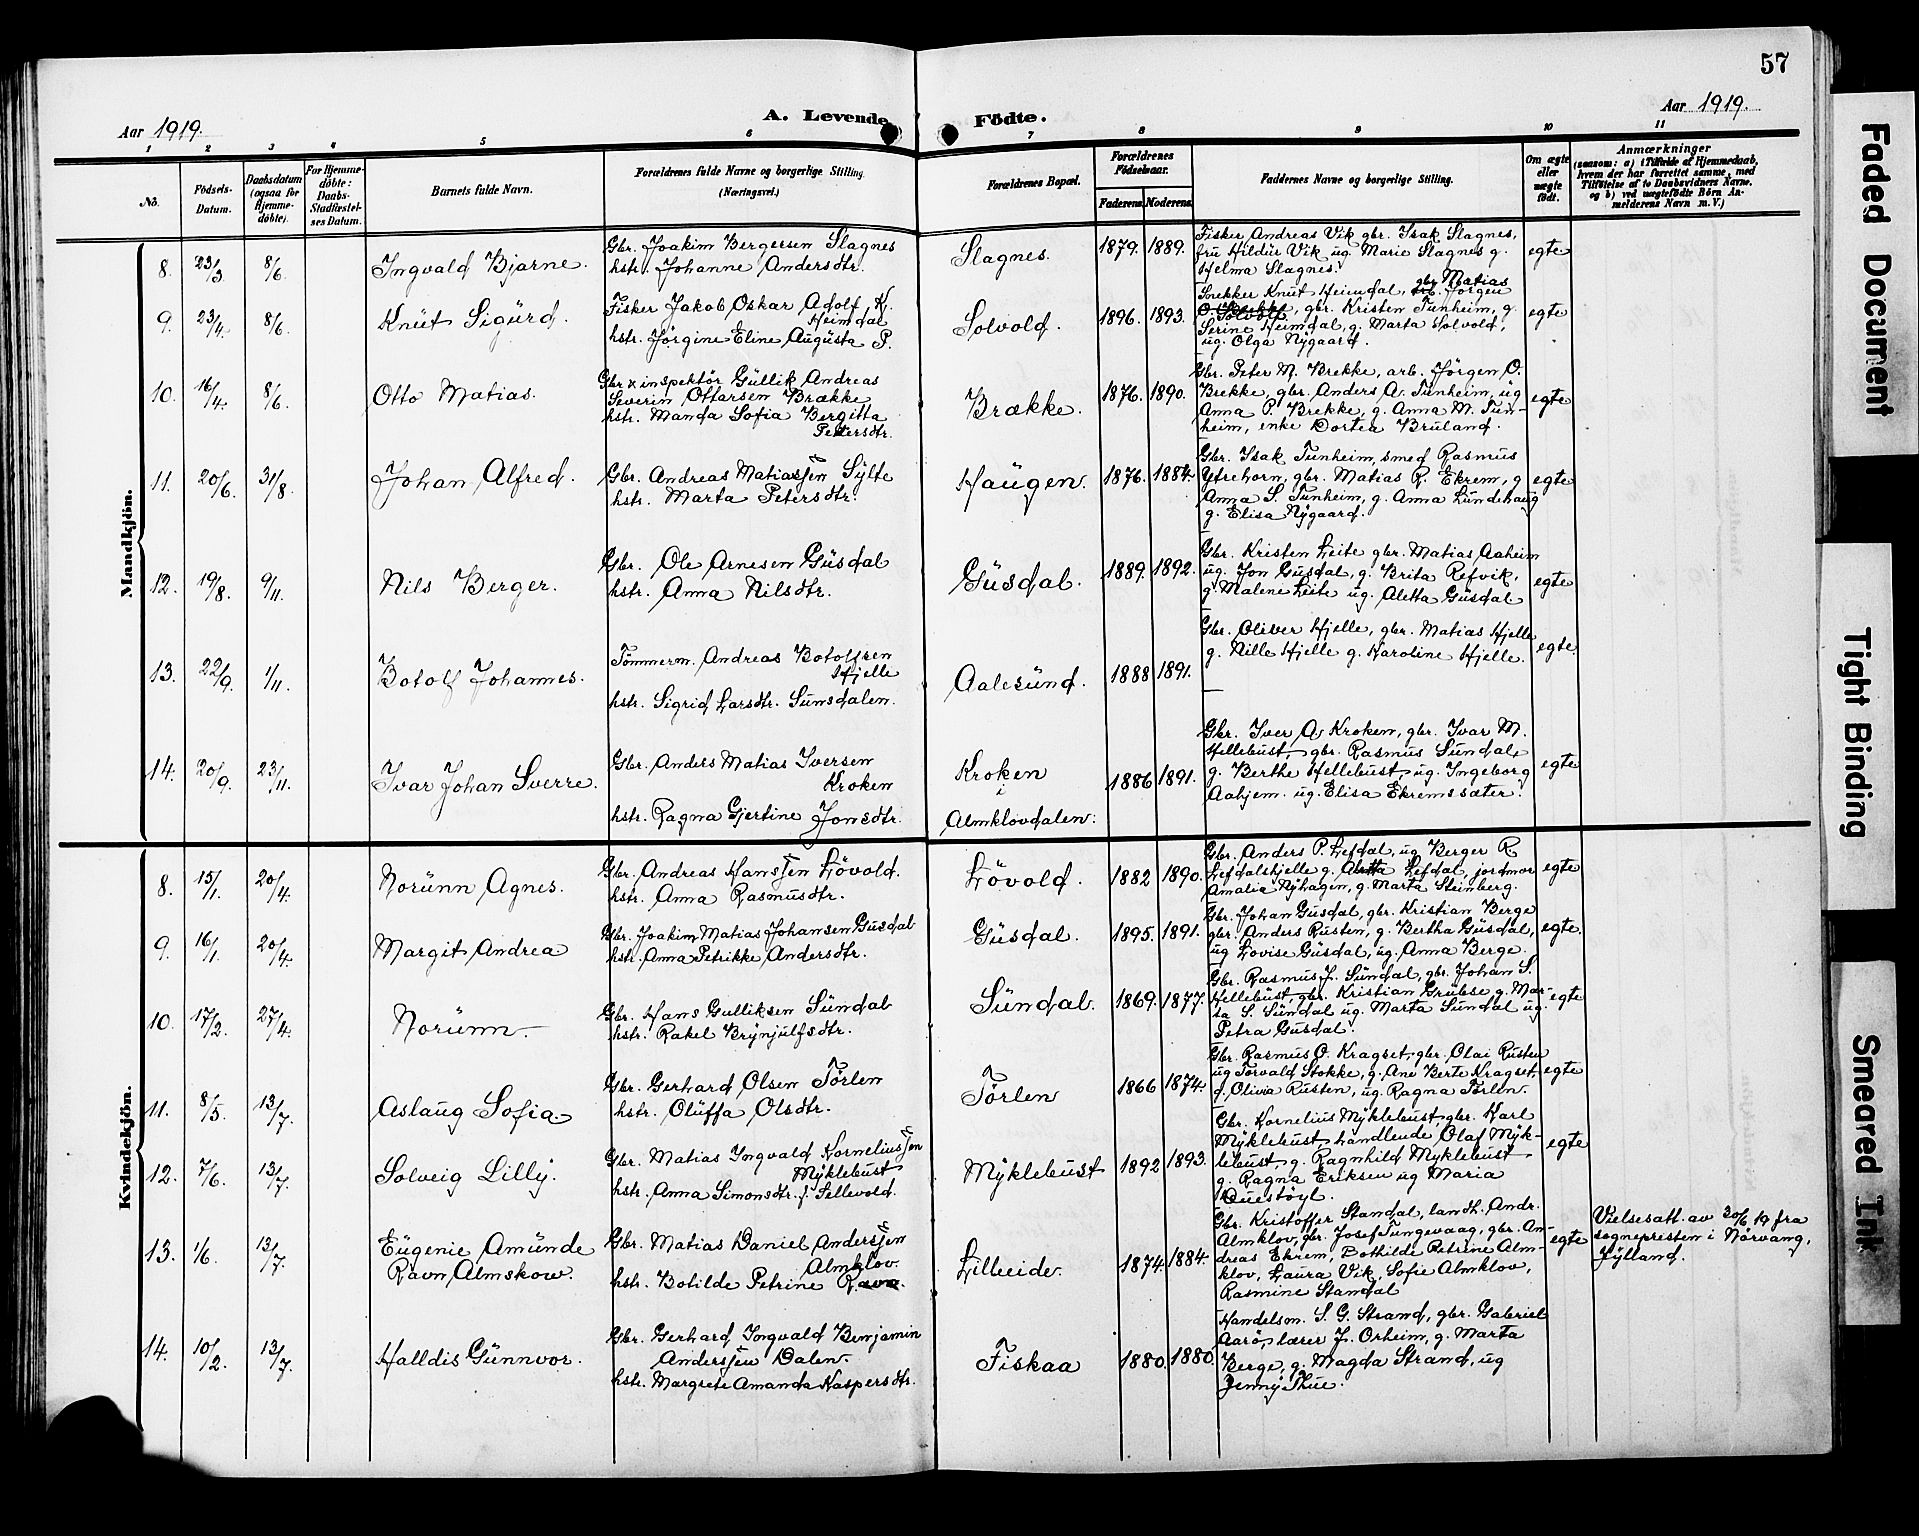 57
Aar 1919.
A. Levende Födte.
Aar 1919.
1 2 3 4 5 6 7 8 9 10 11
No.
Födsels-Datum.
Daabsdatum (ogsaa for Hjemme-döbte).
For Hjemme-döbte: Daabs-Stadfæstel-ses Datum.
Barnets fulde Navn.
Forældrenes fulde Navne og borgerlige Stilling. (Næringsvei.)
Forældrenes Bopæl.
Forældrenes Födselsaar.
Faderens. Moderens.
Faddernes Navne og borgerlige Stilling.
Om ægte eller uægte födt.
Anmærkninger
(saasom: a) i Tilfælde af Hjemmedaab, hvem der har forrettet samme, med Tilföielse af to Daabsvidners Navne, og b) ved uægtefödte Börn An-melderens Navn m. V.)
Mandkjön.
8. 23/3 8/6 Ingvald Bjarne.
Gbr. Joakim Bergersen Slagnes
hstr. Johanne Andersdtr.
Slagnes. 1879. 1889.
Fisker Andreas Vik gbr. Isak Slagnes,
fru Hildur Vik ug. Marie Slagnes g.
Helma Slagnes.
egte
9. 23/4. 8/6. Knut Sigurd.
Fisker Jakob Oskar Adolf K.
Heimdal
hstr. Jørgine Eline Augusta P.
Solvold. 1896. 1893.
gbr Matias
Snekker Knut Heimdal, Jørgen
O. Solvold, gbr. Kristen Tunheim, g.
Serine Heimdal, g. Marta Solvold,
ug. Olga Nygaard.
egte
10. 16/4. 8/6. Otto Matias.
Gbr x inspektör Gullik Andreas
Severin Ottarsen Brække
hstr. Manda Sofia Bergitta
Petersdtr.
Brække. 1876. 1890.
Gbr. Peter M. Brekke, arb. Jörgen O.
Brekke, gbr. Anders A. Tunheim, ug
Anna P. Brekke, g. Anna M. Tun-
heim, enke Dortea Bruland.
egte
11. 20/6. 31/8 Johan Alfred.
Gbr. Andreas Matiassen Sylte
hstr. Marta Petersdtr.
Haugen. 1876. 1884.
Gbr. Isak Tunheim, smed Rasmus
Ytrehorn, gbr. Matias R. Ekrem, g
Anna S. Tunheim, g. Anna Lundehaug
g. Elisa Nygaard.
egte
12. 19/8. 9/11. Nils Berger.
Gbr. Ole Arnesen Gusdal
hstr. Anna Nilsdtr.
Gusdal. 1889. 1892.
Gbr. Kristen Leite gbr. Matias Aaheim
ug. Jon Gusdal, g. Brita Refvik,
g. Malene Leite ug. Aletta Gusdal
egte
13. 22/9. 1/11. Botolf Johannes.
Tömmerm. Andreas Botolfsen
Hjelle
hstr. Sigrid Larsdtr. Sunsdalen.
Aalesund. 1888 1891.
Gbr. Oliver Hjelle, gbr. Matias Hjelle
g. Nille Hjelle g. Karoline Hjelle.
egte.
14. 20/9. 23/11. Ivar Johan Sverre.
Gbr. Anders Matias Iversen
Kroken
hstr. Ragna Gjertine Jonsdtr.
Kroken
i
Almklovdalen.
1886 1891.
Gbr. Iver A Kroken, gbr. Ivar M.
Hellebust, gbr. Rasmus Sundal,
g. Berthe Hellebust, ug. Ingeborg
Aahjem. ug. Elisa Ekremssæter.
egte
Kvindekjön.
8. 15/1. 20/4. Norunn Agnes.
Gbr. Andreas Hanssen Lövold.
hstr. Anna Rasmusdtr.
Lövold. 1882 1890.
Gbr. Anders P. Lefdal, ug Berger R
Lefdalshjelle g. Aletta Lefdal, jordmor
Amalia Nyhagen, g. Marta Steinberg.
egte
9. 16/1. 20/4. Margit Andrea
Gbr. Joakim Matias Johansen Gusdal
hstr. Anna Petrikke Andersdtr.
Gusdal. 1895. 1891.
Gbr. Johan Gusdal, gbr. Kristian Berge
gbr. Anders Rusten, g. Bertha Gusdal,
ug Lovise Gusdal, ug. Anna Berge.
egte.
10. 17/2. 27/4. Norunn
Gbr. Hans Gulliksen Sundal
hstr. Rakel Brynjulfsdtr.
Sundal. 1869. 1877.
Gbr. Rasmus J. Sundal, gbr. Johan S.
Hellebust, gbr. Kristian Grubse g. Mar-
ta S. Sundal ug. Marta Sundal ug.
Petra Gusdal.
egte
11. 8/5. 13/7. Aslaug Sofia
Gbr. Gerhard Olsen Törlen
hstr. Oluffa Olsdtr.
Törlen 1866 1874.
Gbr. Rasmus O. Kragset, gbr. Olai Rusten
ug Torvald Stokke, g. Ane Berte Kragset,
g. Olivia Rusten, ug. Ragna Törlen.
egte
12. 7/6. 13/7. Solveig Lilly.
Gbr. Matias Ingvald Korneliussen
Myklebust
hstr. Anna Simonsdtr. f. Sellevold.
Myklebust 1892 1893.
Gbr. Kornelius Myklebust, gbr. Karl
Myklebust, handlende Olaf Myk-
lebust, g. Ragnhild Myklebust
g. Ragna Eriksen ug Maria
Duestöyl.
egte
13. 1/6. 13/7. Eugenie Amunde
Ravn Almskow.
Gbr. Matias Daniel Anderssen
Almklov.
hstr. Botilde Petrine Ravn.
Lilleeide. 1874. 1884.
Gbr. Kristoffer Standal, landh. Andr.
Almklov, gbr. Josef Tungevaag, gbr. An-
dreas Ekrem, Bothilde Petrine Alm-
klov, Laura Vik, Sofie Almklov,
Rasmine Standal
egte
Vielsesatt. av 30/6 19 fra
sognepresten i Nörvang,
Jylland.
14. 10/2. 13/7. Halldis Gunnvor.
Gbr. Gerhard Ingvald Benjamin
Anderssen Dalen.
hstr. Margrete Amanda Kaspersdtr.
Fiskaa 1880. 1880.
Handelsm. S. G. Strand, gbr. Gabriel
Aarö, lærer J. Orheim, g. Marta
Berge, g. Magda Strand, ug
Jenny Thue.
Faded Document
Tight Binding
Smeared Ink